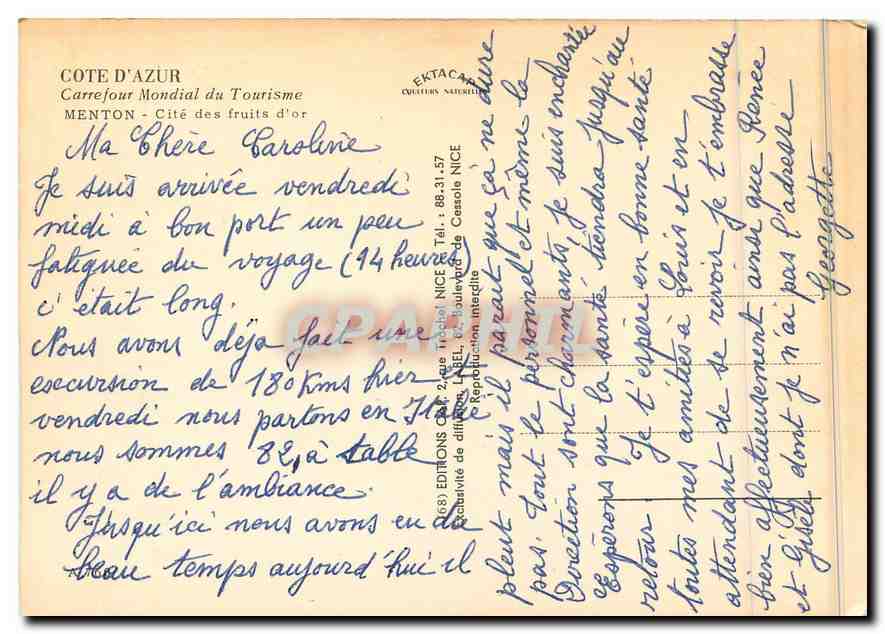 COTE D'AZUR
Carrefour Mondial du Tourisme
MENTON - Cité des fruits d'or
EKTACAP
COULEURS NATURELLES
Ma Chère Caroline
Je suis arrivée vendredi
midi à bon port un peu
fatiguée du voyage (14 heures)
c'était long.
Nous avons déja fait une
escursion de 180 Kms hier et
vendredi nous partons en Italie
nous sommes 82, à table
il y a de l'ambiance.
Jusqu'ici nous avons eu du
beau temps aujourd'hui il
pleut mais il parait que ça ne dure
pas. Tout le personnel et même la
Direction sont charmants, je suis enchantée
Espérons que la santé tiendra jusqu'au
retour. Je t'espère en bonne santé
toutes mes amitiés à Louis et en
attendant de se revoir je t'embrasse
bien affectueusement ainsi que Renée
et Gisèle dont je n'ai pas l'adresse
Georgette
(68) EDITIONS CAP, 2, rue Trachel NICE - Tél. : 88.31.57
Exclusivité de diffusion, LABEL, 82, Boulevard de Cessole NICE
Reproduction interdite
CPAPHIL